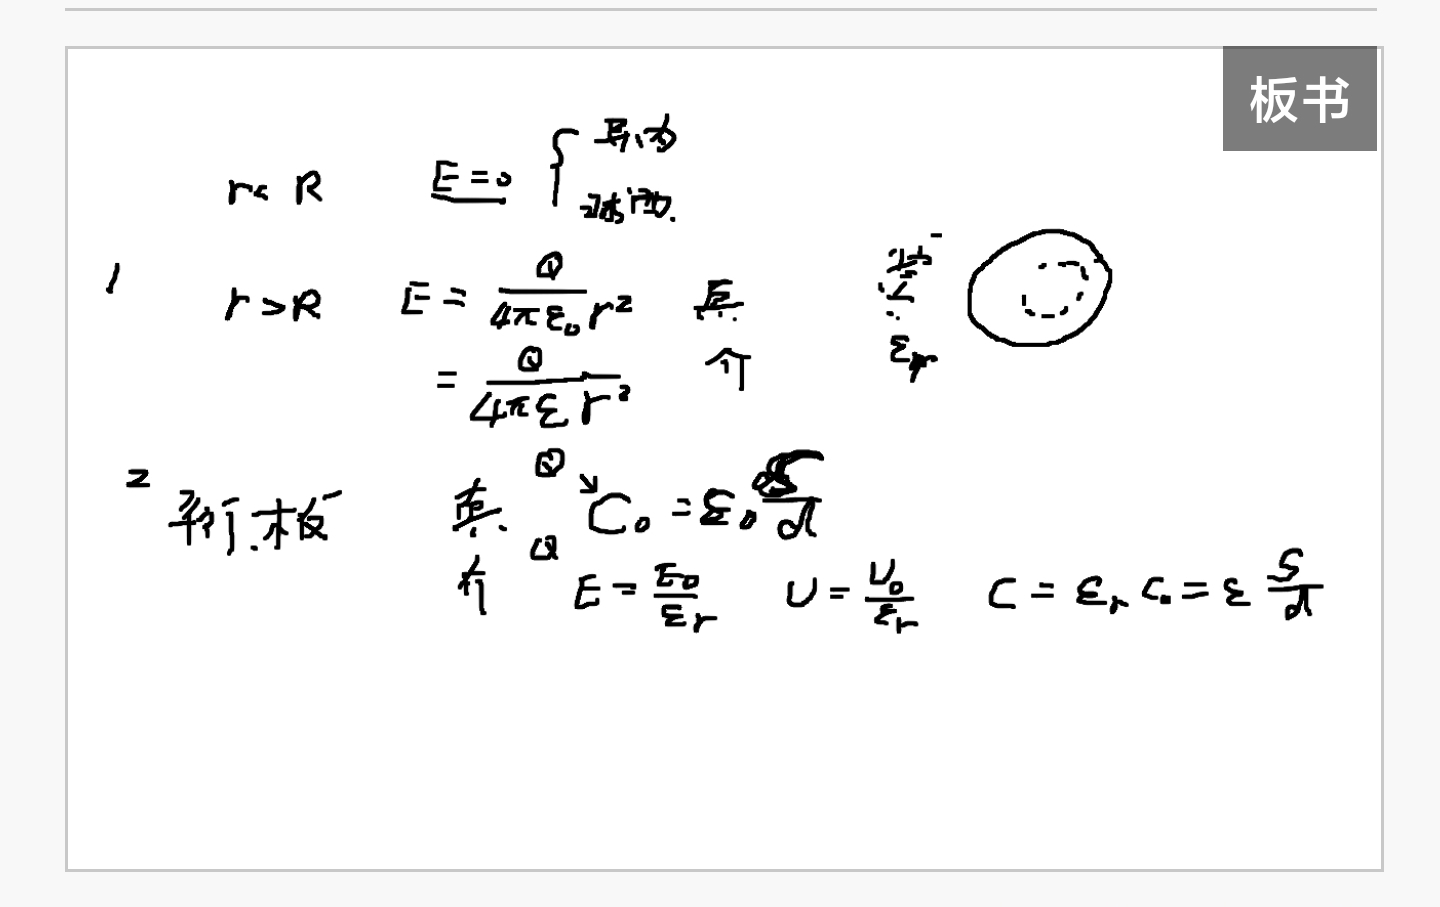 板书
r < R E = 0 { 导内
球内
1 r > R E = Q / 4πε₀r² 真
= Q / 4πεr² 介
εr
2 平行板 真 Q C₀ = ε₀ S/d
介 Q E = E₀/εr U = U₀/εr C = εr C₀ = ε S/d